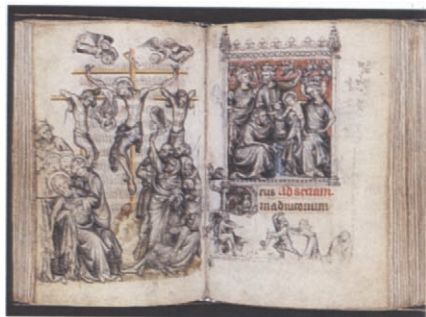 eus Ad sextam
in adiutorium